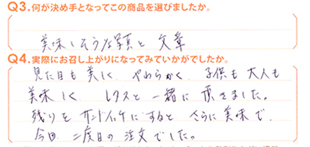 Q3.何が決め手となってこの商品を選びましたか。
美味しそうな写真と 文章
Q4.実際にお召し上がりになってみていかがでしたか。
見た目も美しく やわらかく 子供も大人も
美味しく レタスと一緒に頂きました。
残りを サンドイッチにすると さらに美味で
今回 二度目の注文でした。